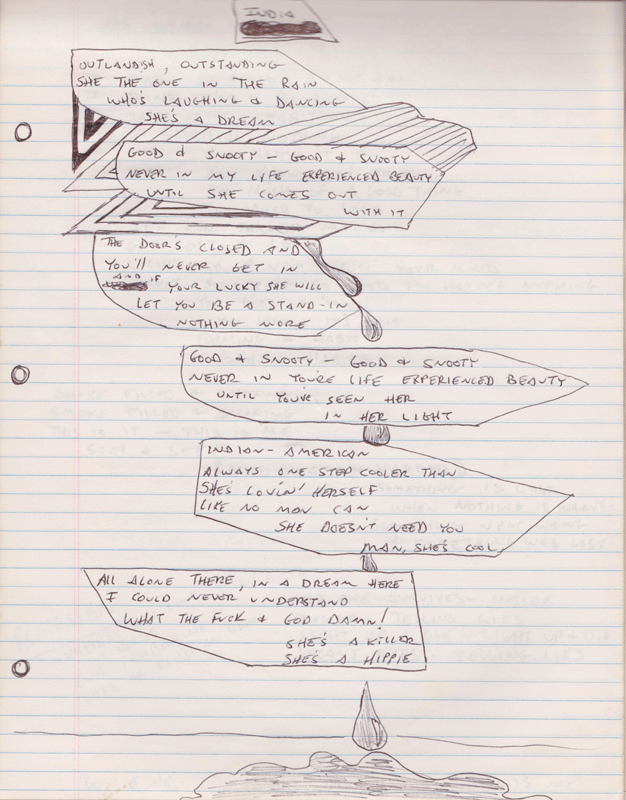 INDIA
OUTLANDISH, OUTSTANDING
SHE THE ONE IN THE RAIN
WHO'S LAUGHING & DANCING
SHE'S A DREAM
GOOD & SNOOTY - GOOD & SNOOTY
NEVER IN MY LIFE EXPERIENCED BEAUTY
UNTIL SHE COMES OUT
WITH IT
THE DOOR'S CLOSED AND
YOU'LL NEVER GET IN
AND IF YOUR LUCKY SHE WILL
LET YOU BE A STAND-IN
NOTHING MORE
GOOD & SNOOTY - GOOD & SNOOTY
NEVER IN YOU'RE LIFE EXPERIENCED BEAUTY
UNTIL YOU'VE SEEN HER
IN HER LIGHT
INDIAN-AMERICAN
ALWAYS ONE STEP COOLER THAN
SHE'S LOVIN' HERSELF
LIKE NO MAN CAN
SHE DOESN'T NEED YOU
MAN, SHE'S COOL
ALL ALONE THERE, IN A DREAM HERE
I COULD NEVER UNDERSTAND
WHAT THE FUCK & GOD DAMN!
SHE'S A KILLER
SHE'S A HIPPIE